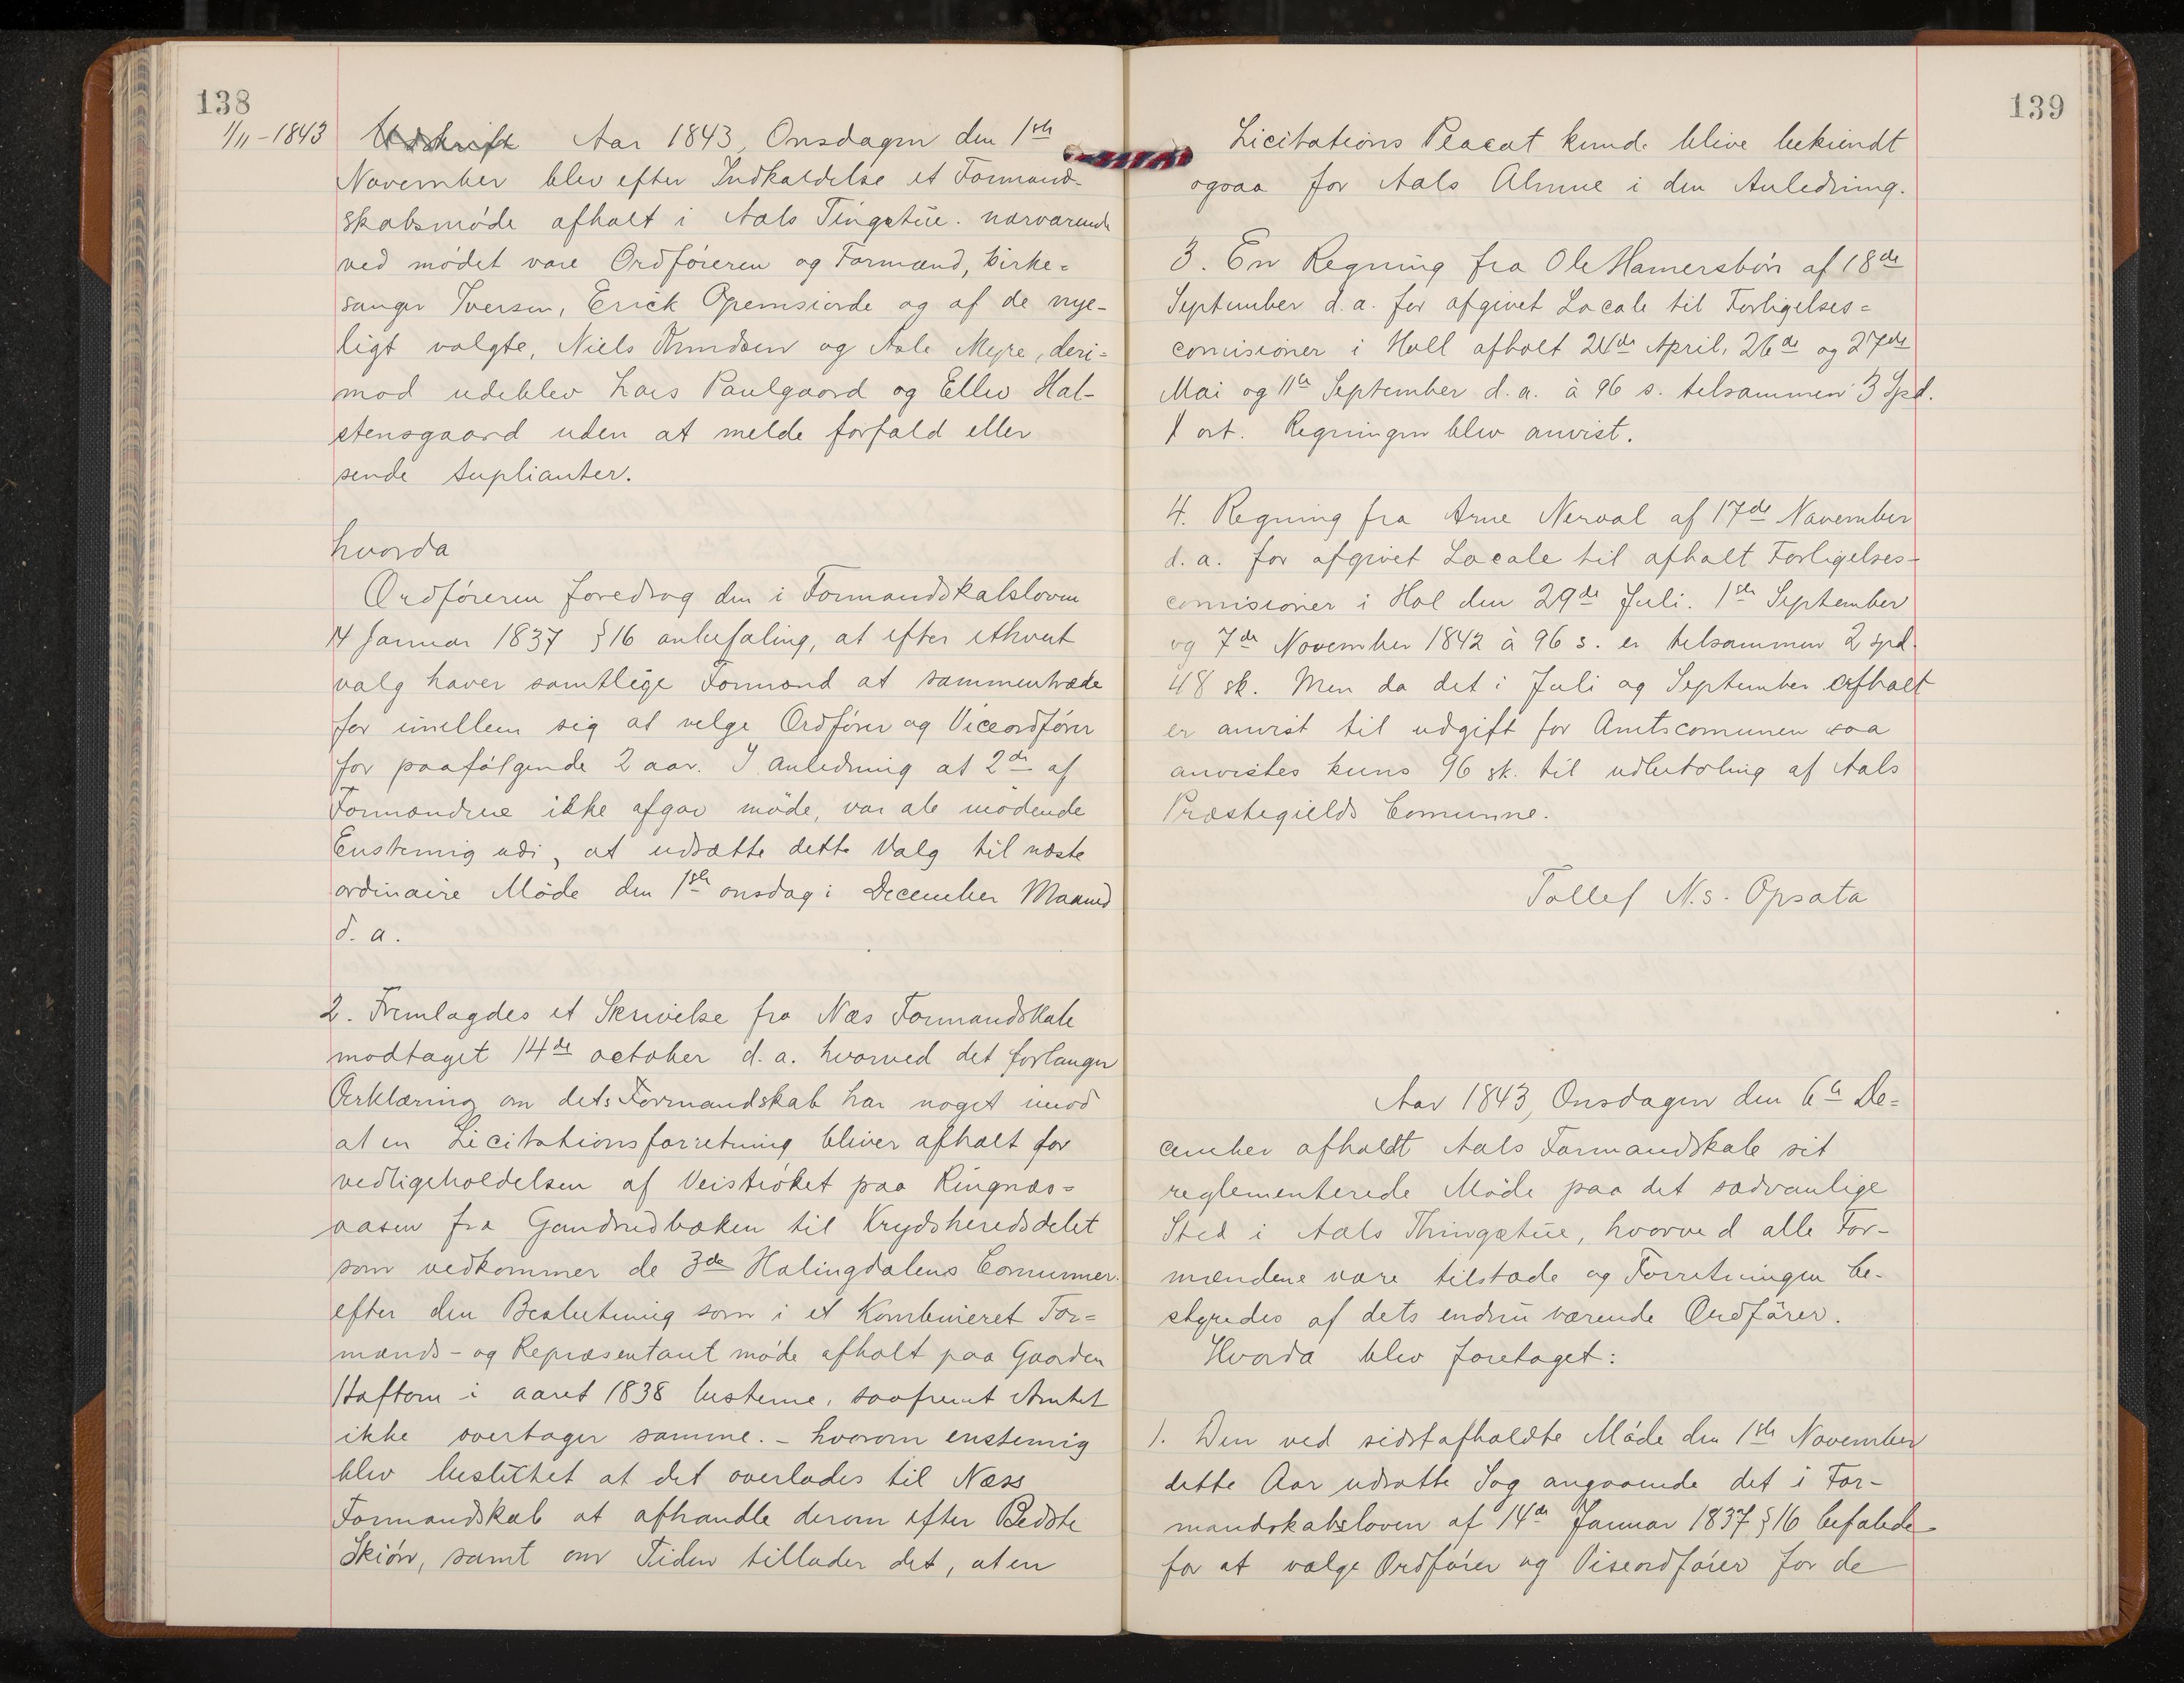 138
1/11-1843
Aar 1843, Onsdagen den 1ste
November blev efter Indkaldelse et Formand-
skabsmøde afholt i Aals Tingstue. nærværende
ved mødet vare Ordføreren og Formænd, kirke=
sanger Iversen, Erick Opemsiorde og af de nye-
ligt valgte, Niels Amundsen og Asle Myre, deri=
mod udeblev Lars Paulgaard og Ellev Hal-
stensgaard uden at melde forfald eller
sende suplianter.
hvorda
Ordføreren foredrog den i Formandskabsloven
14 Januar 1837 §16 anbefaling, at efter ethvert
valg haver samtlige Formænd at sammentræde
for imellem sig at velge Ordfører og Viceordfører
for paafølgende 2 aar. I anledning at 2de af
Formændene ikke afgav møde, var ale mødende
Enstemig udi, at udsætte dette Valg til næste
ordinaire Møde den 1ste onsdag i December Maaned
d. a.
2. Fremlagdes et Skrivelse fra Næs Formandskab
modtaget 14de october d. a. hvorved det forlanger
Erklæring om dets Formandskab har noget imod
at en Licitationsforretning bliver afholt for
vedligeholdelsen af Veistrøket paa Ringnæs=
aasen fra Gandrudbækken til Krydsherredsdelet
som vedkommer de 3de Halingdalens Comunner.
efter den Beslutning som i et Kombineret For=
mands- og Repræsentant møde afholt paa Gaarden
Haftorn i aaret 1838 besteme, saafremt Amtet
ikke overtager samme. - hvorom enstemig
blev beslüttet at det overlades til Næss
Formandskab at afhandle derom efter Bedste
Skiøn, samt om Tiden tillader det, at en
139
Licitations Placat kunde blive bekiendt
ogsaa for Aals Almue i den Anledning.
3. En Regning fra Ole Hamersbøn af 18de
September d. a. for afgivet Locale til Forligelses=
comisioner i Holl afholt 24de April, 26de og 27de
Mai og 11te September d. a. à 96 s. telsammen 3 Spd.
1 ort. Regningen blev anvist.
4. Regning fra Arne Nerval af 17de November
d. a. for afgivet Locale til afholt Forligelses-
comisioner i Hol den 29de Juli. 1ste September
og 7de November 1842 à 96 s. er telsammen 2 spd.
48 sk. Men da det i Juli og September afholt
er anvist til udgift for Amtscomunen saa
anvistes kuns 96 sk. til udbetaling af Aals
Præstegields Comunne.
Tollef N.s. Opsata
Aar 1843, Onsdagen den 6te De=
cember afholdt Aals Formandskab sit
reglementerede Møde paa det sædvanlige
Sted i Aals Thingstüe, hvorved alle For-
mændene vare tilstæde og Forretningen be-
styredes af dets endnu værende Ordfører.
Hvorda blev foretaget:
1. Den ved sidstafholdte Møde den 1ste November
dette Aar udsatte Sag angaaende det i For-
mandskabsloven af 14de Januar 1837 §16 befalede
for at vælge Ordfører og Viseordfører for de